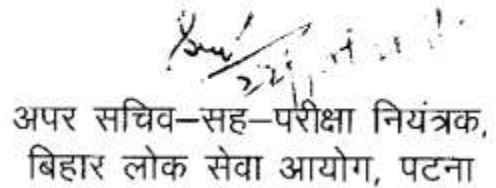 अपर सचिव–सह–परीक्षा नियंत्रक,
बिहार लोक सेवा आयोग, पटना